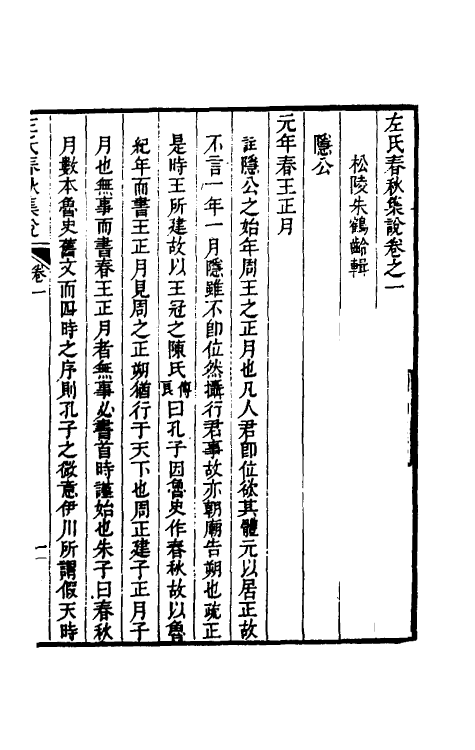 左氏春秋集說卷之一
松陵朱鶴齡輯
隱公
元年春王正月
註隱公之始年周王之正月也凡人君卽位欲其體元以居正故
不言一年一月隱雖不卽位然攝行君事故亦朝廟告朔也疏正
是時王所建故以王冠之陳氏傅良曰孔子因魯史作春秋故以魯
紀年而書王正月見周之正朔猶行于天下也周正建子正月子
月也無事而書春王正月者無事必書首時謹始也朱子曰春秋
月數本魯史舊文而四時之序則孔子之微意伊川所謂假天時
左氏春秋集說
卷一
一